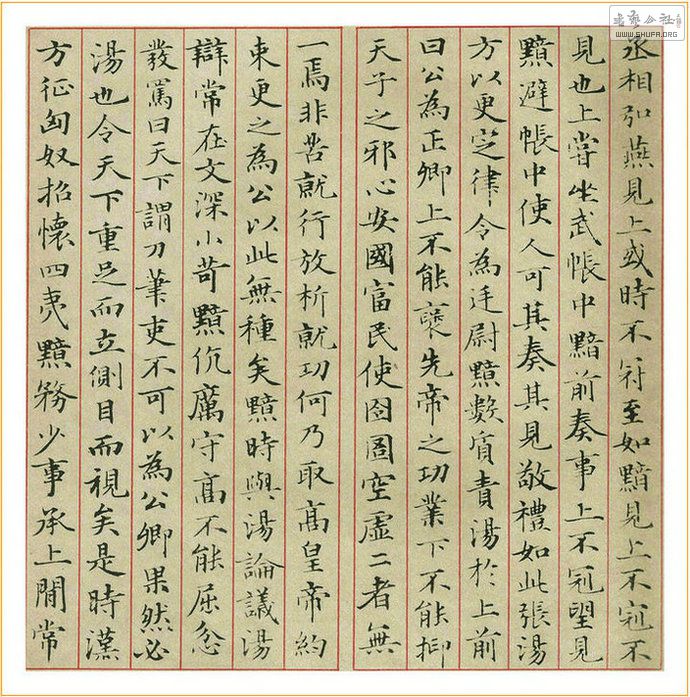 丞相弘燕見上或時不冠至如黯見上不冠不
見也上嘗坐武帳中黯前奏事上不冠望見
黯避帳中使人可其奏其見敬禮如此張湯
方以更定律令為廷尉黯數質責湯於上前
曰公為正卿上不能襃先帝之功業下不能抑
天子之邪心安國富民使囹圄空虛二者無
一焉非苦就行放析就功何乃取高皇帝約
束更之為公以此無種矣黯時與湯論議湯
辯常在文深小苛黯伉厲守高不能屈忿
發罵曰天下謂刀筆吏不可以為公卿果然必
湯也令天下重足而立側目而視矣是時漢
方征匈奴招懷四夷黯務少事承上閒常
书艺公社
WWW.SHUFA.ORG